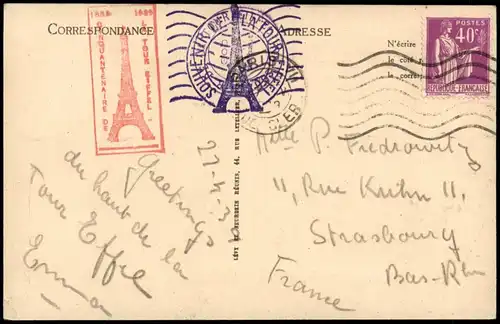 CORRESPONDANCE
ADRESSE
1889 1939
CINQUANTENAIRE DE LA TOUR EIFFEL
SOUVENIR DE LA TOUR EIFFEL
N'écrire
le côté
la corresp
POSTES
40c
REPUBLIQUE FRANÇAISE
PARIS
LÉVY ET NEURDEIN RÉUNIS, 44, RUE LETELLIER,
22-4-
Greetings
du haut de la
Tour Effel
Emma
Mlle P. Fredrowitz
11, Rue Kuhn 11
Strasbourg
Bas-Rhin
France